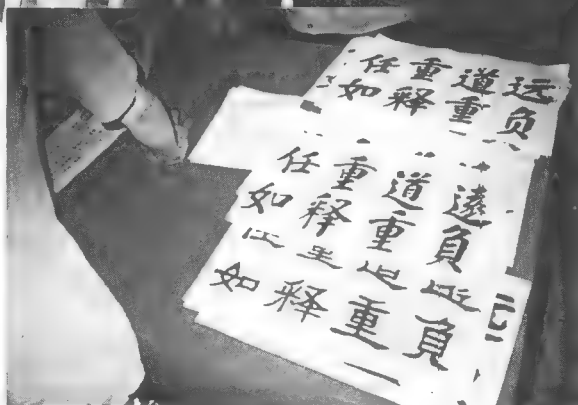 任重道远
如释重负
任重道遠
如释重負
如释重負